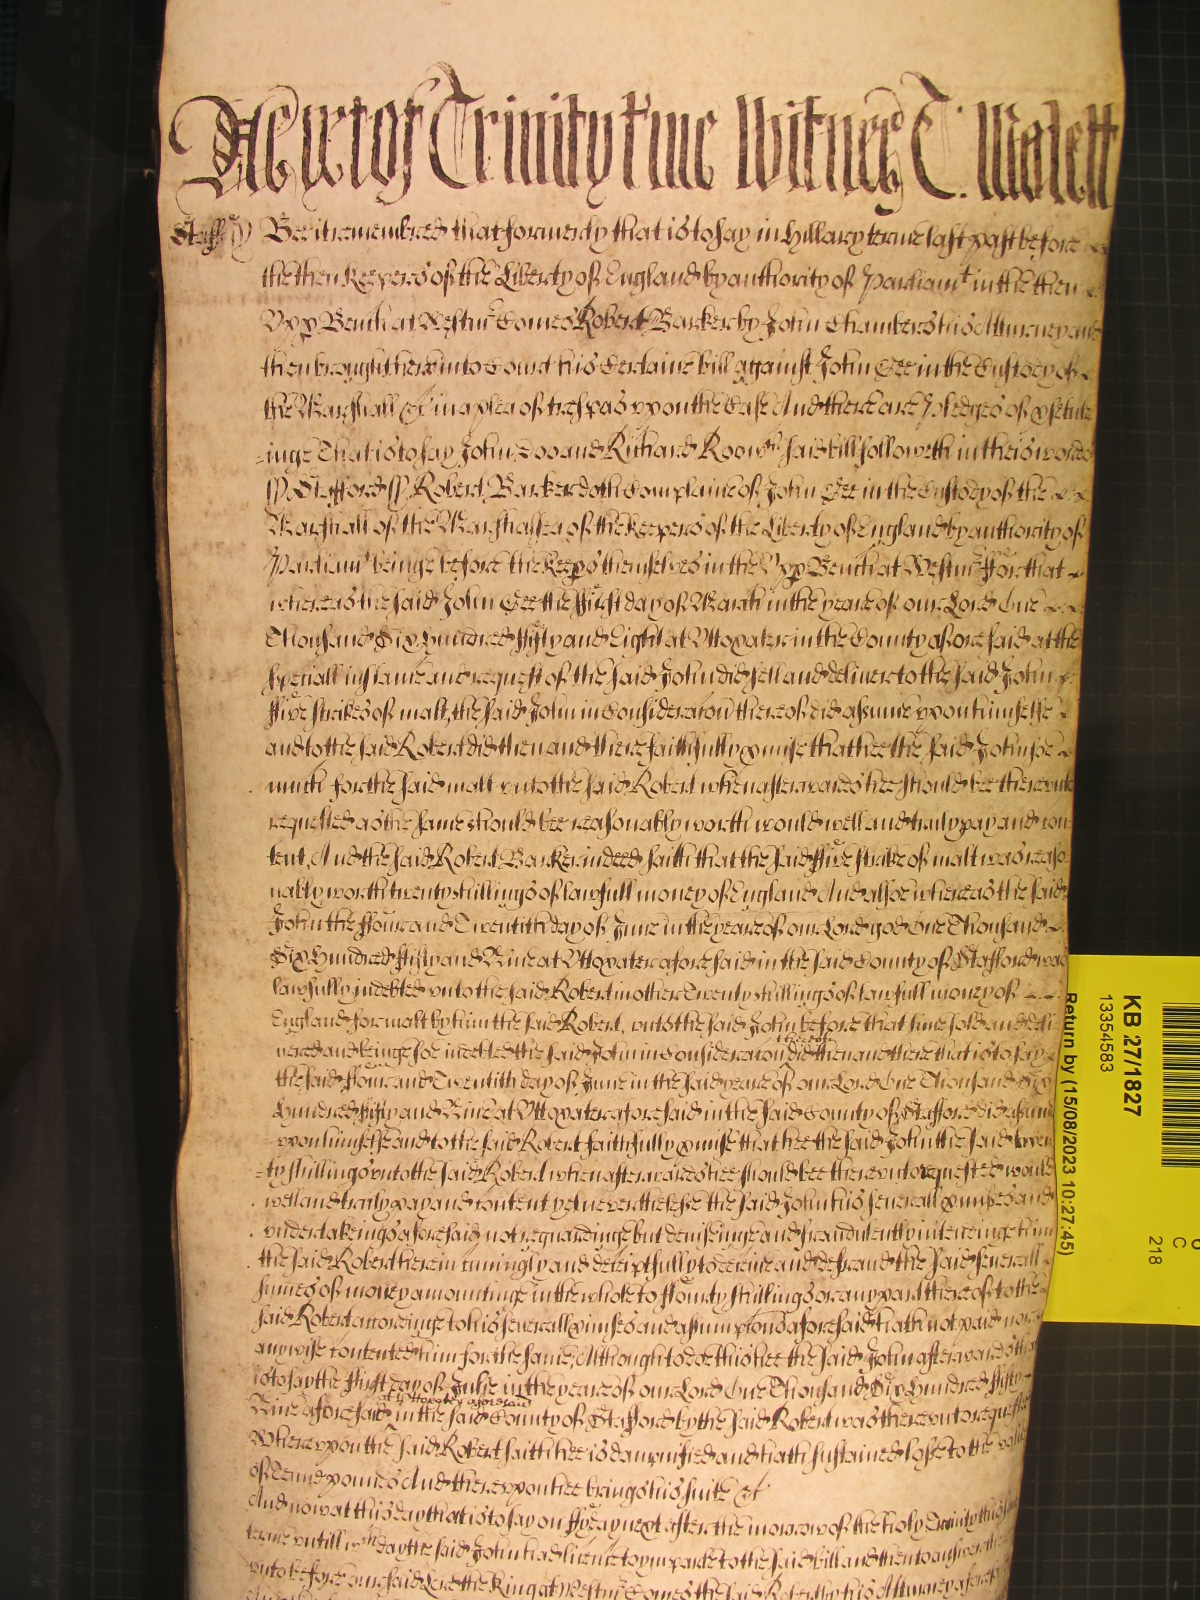 As yet of Trinity tme Witnes T. Malett
Staff ss Bee it remembred that formerly that is to say in Hillary terme last past before
the then Keepers of the Liberty of England by authority of Parliamt in the then
Vpp Bench at Westmr Comes Robert Barker by John Chambers his Atturney and
then brought here into Court his certaine bill against John Gee in the Custody of
the Marshall &c in a plea of trespas vpon the Case And there are Pledges of psecute
inge That is to say John Doo and Richard Roo wch said bill followeth in theis words
ss Stafford ss Robert Barker doth Complaine of John Gee in the Custody of the
Marshall of the Marshalsea of the Keepers of the Liberty of England by authority of
Parliamt beinge before the Keeps themselves in the Vpp Bench at Westmr ffor that
whereas the said John Gee the ffirst day of March in the yeare of our Lord One
Thousand Six Hundred ffifty and Eight at Vttoxater in the County aforesaid at the
speciall instance and request of the said John did sell and deliver to the said John
ffive strikes of malt, the said John in Consideracon thereof did assume vpon himselfe
and to the said Robert did then and there faithfully pmise that hee the said John soe
much for the said malt vnto the said Robert when afterwards hee should bee therevnto
requested as the same should bee reasonably worth would well and truly pay and con
tent, And the said Robert Barker indeed saith that the said ffive strike of malt was reaso
nably worth twenty shillings of lawfull money of England And alsoe whereas the said
John the ffour and Twentith day of June in the yeare of our Lord god One Thousand
Six Hundred ffifty and Nine at Vttoxater aforesaid in the said County of Stafford was
lawfully indebted vnto the said Robert in other Twenty shillings of lawfull money of
England for malt by him the said Robert, vnto the said John before that time sold and deli
vered and beinge soe indebted the said John in Consideracon thereof did then and there that is to say
the said ffour and Twentith day of June in the said yeare of our Lord One Thousand Six
Hundred ffifty and Nine at Vttoxater aforesaid in the said County of Stafford did assume
vpon himselfe and to the said Robert faithfully pmise that hee the said John the said twen
ty shillings vnto the said Robert when afterwards hee should bee therevnto requested would
well and truly pay and content yet neverthelesse the said John his severall pmises and
vndertakings aforesaid not regardinge but deviseinge and fraudulently intendinge him
the said Robert therein cuningly and deceiptfully to deceive and defraud the said severall
sumes of money amountinge in the whole to ffourty shillings or any part thereof to the
said Robert accordinge to his severall pmises and assumptions aforesaid hath not paid nor
any wise contented him for the same, Although to doe this hee the said John afterwards that
is to say the ffirst day of Julie in the yeare of our Lord One Thousand Six Hundred ffifty
Nine aforesaid at Vttoxater aforesaid in the said County of Stafford by the said Robert was therevnto requested
Wherevpon the said Robert saith hee is dampnified and hath sustained losse to the value
of Tenne pounds And therevpon hee brings his suite &c
And now at this day that is to say on ffryday next after the morrow of the holy Trinity this same
terme vntill wch day the said John had licence to imparle to the said bill and then to answere there
vnto before our said Lord the King at Westmr Comes the said Robert by his Atturney aforesaid
KB 27/1827
13354583
Return by (15/08/2023 10:27:45)
C
218